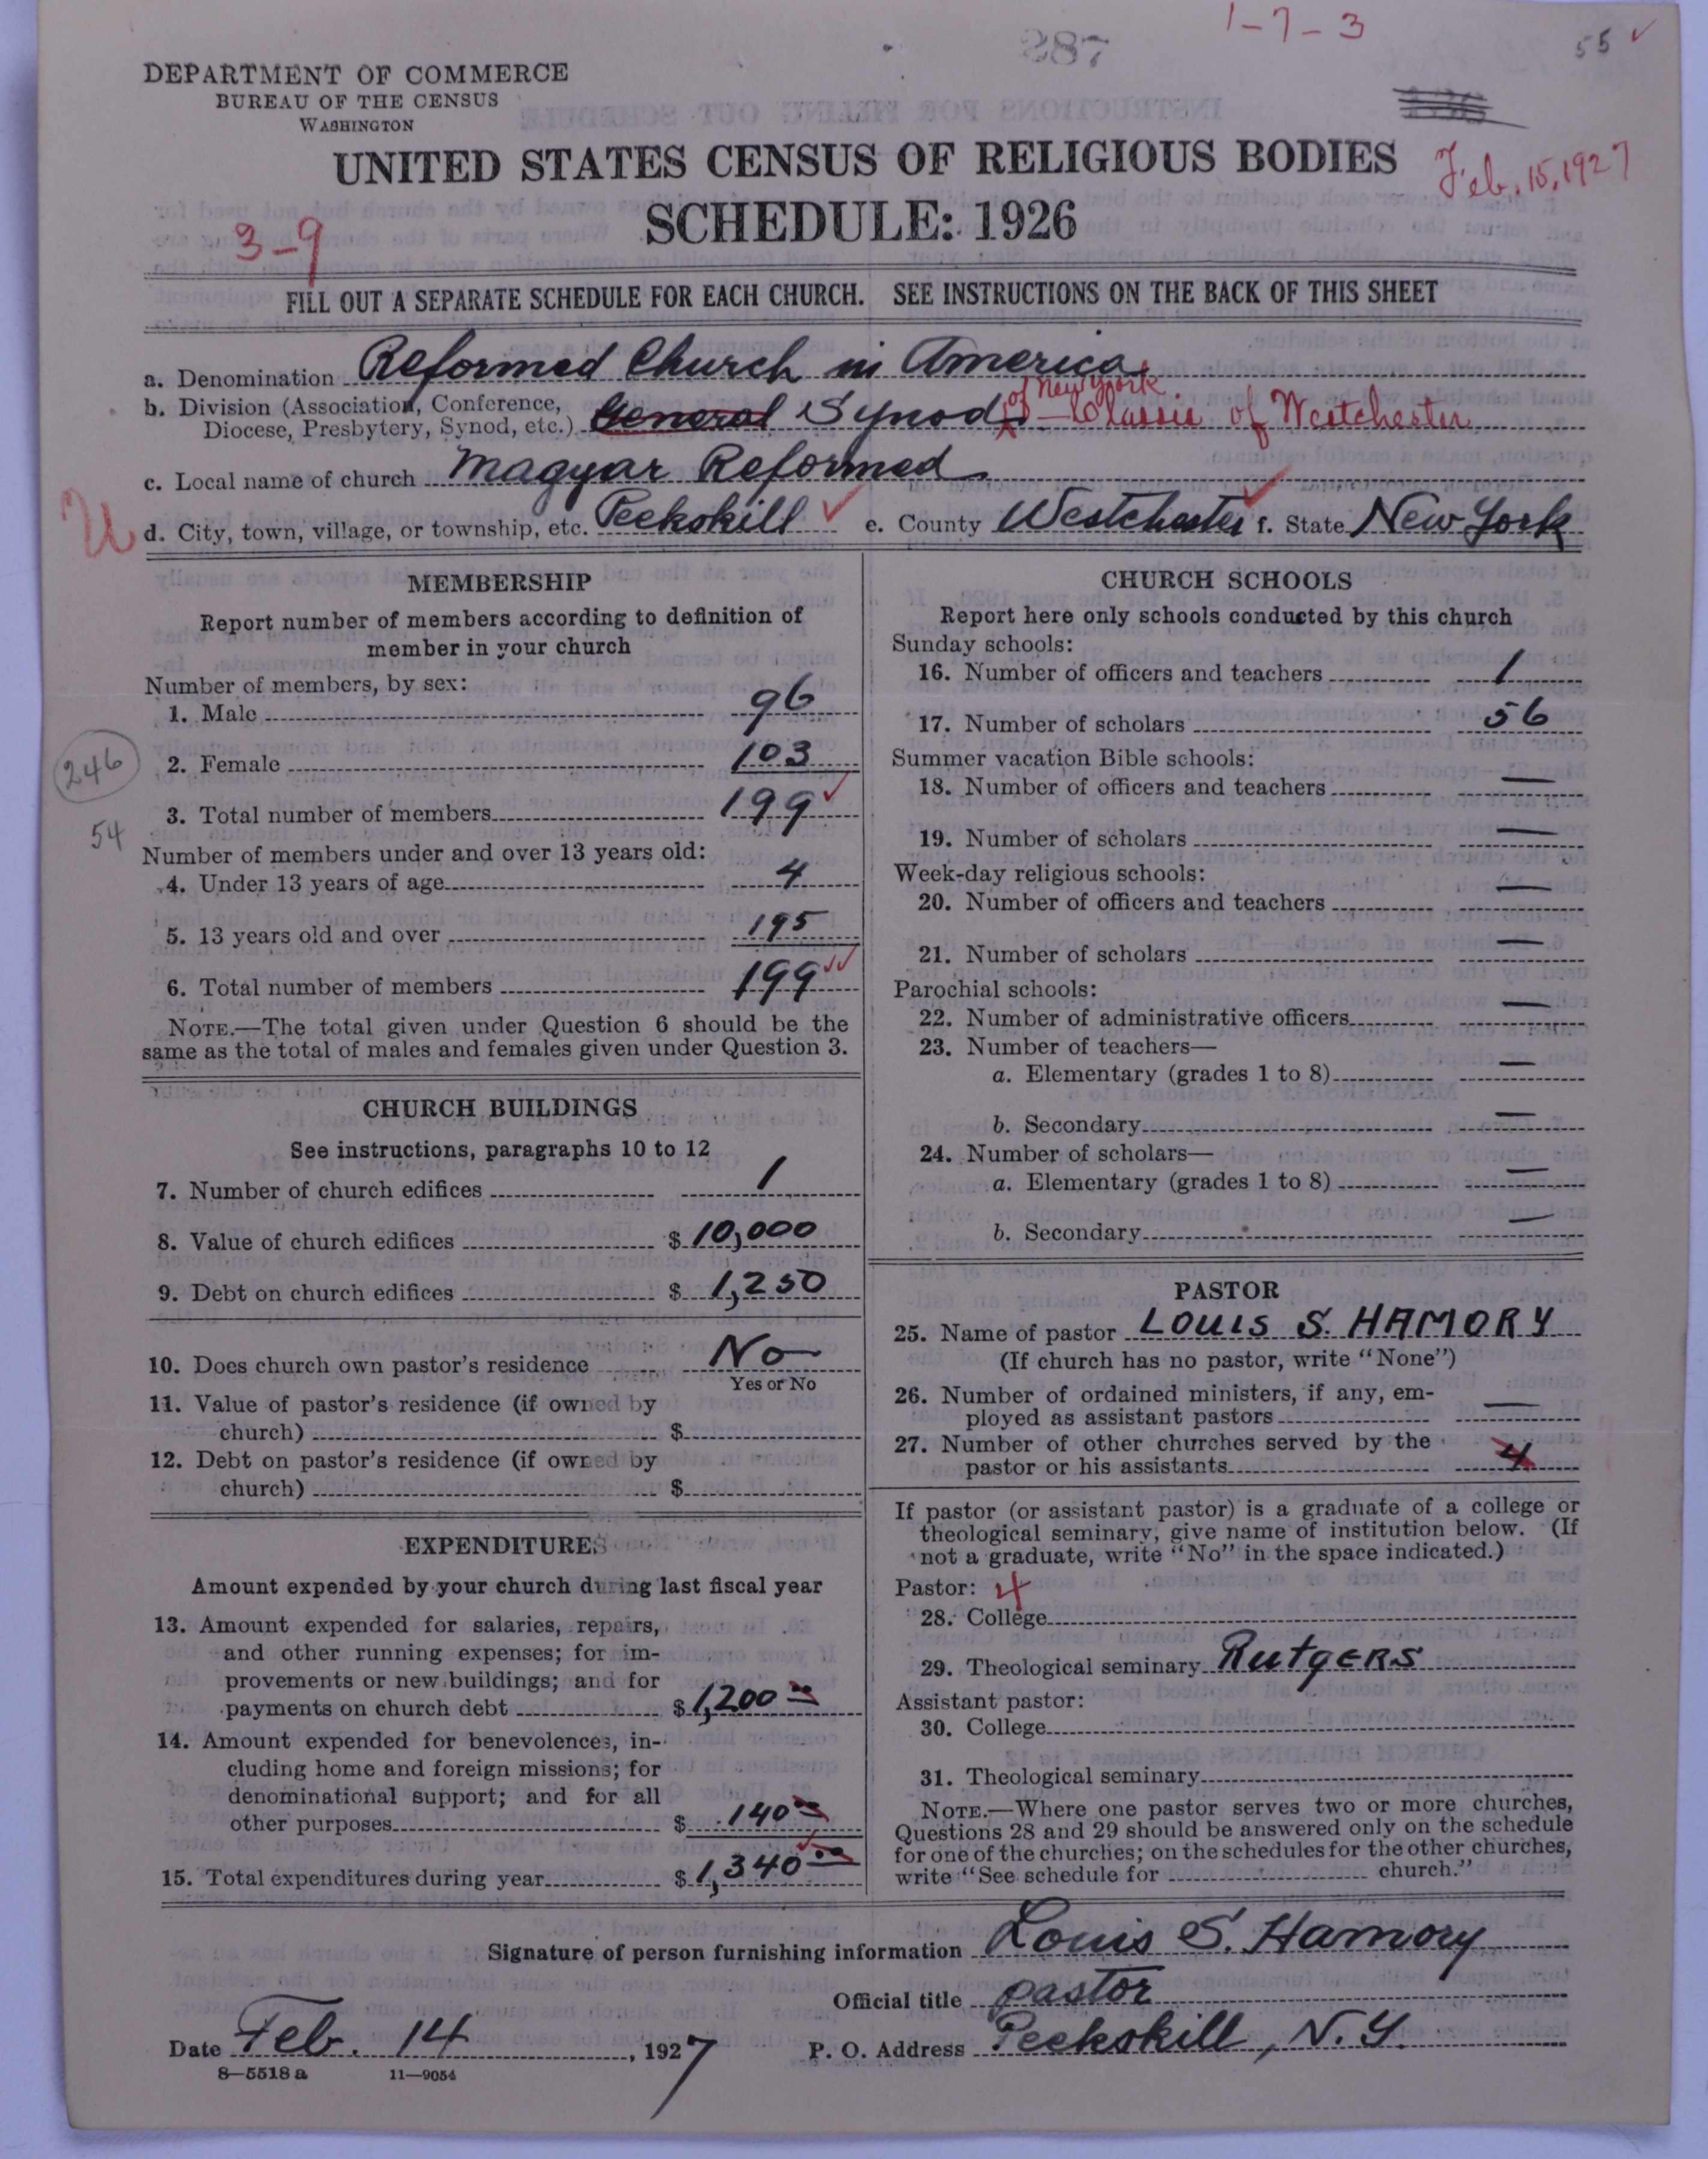 1-7-3
287
55
DEPARTMENT OF COMMERCE
BUREAU OF THE CENSUS
WASHINGTON
UNITED STATES CENSUS OF RELIGIOUS BODIES
Feb. 15, 1927
SCHEDULE: 1926
3-9
FILL OUT A SEPARATE SCHEDULE FOR EACH CHURCH. SEE INSTRUCTIONS ON THE BACK OF THIS SHEET
a. Denomination Reformed Church in America
b. Division (Association, Conference, Diocese, Presbytery, Synod, etc.) General Synod of New York — Classis of Westchester
c. Local name of church Magyar Reformed
U
d. City, town, village, or township, etc. Peekskill e. County Westchester f. State New York
MEMBERSHIP
Report number of members according to definition of
member in your church
Number of members, by sex:
1. Male 96
2. Female 103
246
3. Total number of members 199
54
Number of members under and over 13 years old:
4. Under 13 years of age 4
5. 13 years old and over 195
6. Total number of members 199
NOTE.—The total given under Question 6 should be the
same as the total of males and females given under Question 3.
CHURCH BUILDINGS
See instructions, paragraphs 10 to 12
7. Number of church edifices 1
8. Value of church edifices $ 10,000
9. Debt on church edifices $ 1,250
10. Does church own pastor's residence No
Yes or No
11. Value of pastor's residence (if owned by
church) $
12. Debt on pastor's residence (if owned by
church) $
EXPENDITURES
Amount expended by your church during last fiscal year
13. Amount expended for salaries, repairs,
and other running expenses; for im-
provements or new buildings; and for
payments on church debt $ 1,200 00
14. Amount expended for benevolences, in-
cluding home and foreign missions; for
denominational support; and for all
other purposes $ 140 00
15. Total expenditures during year $ 1,340 00
CHURCH SCHOOLS
Report here only schools conducted by this church
Sunday schools:
16. Number of officers and teachers 1
17. Number of scholars 56
Summer vacation Bible schools:
18. Number of officers and teachers —
19. Number of scholars —
Week-day religious schools:
20. Number of officers and teachers —
21. Number of scholars —
Parochial schools:
22. Number of administrative officers —
23. Number of teachers—
a. Elementary (grades 1 to 8) —
b. Secondary —
24. Number of scholars—
a. Elementary (grades 1 to 8) —
b. Secondary —
PASTOR
25. Name of pastor LOUIS S. HAMORY
(If church has no pastor, write "None")
26. Number of ordained ministers, if any, em-
ployed as assistant pastors —
27. Number of other churches served by the
pastor or his assistants 4
If pastor (or assistant pastor) is a graduate of a college or
theological seminary, give name of institution below. (If
not a graduate, write "No" in the space indicated.)
Pastor: 4
28. College
29. Theological seminary RUTGERS
Assistant pastor:
30. College
31. Theological seminary
NOTE.—Where one pastor serves two or more churches,
Questions 28 and 29 should be answered only on the schedule
for one of the churches; on the schedules for the other churches,
write "See schedule for church."
Signature of person furnishing information Louis S. Hamory
Official title pastor
Date Feb. 14, 1927 P. O. Address Peekskill, N.Y.
8—5518 a 11—9054